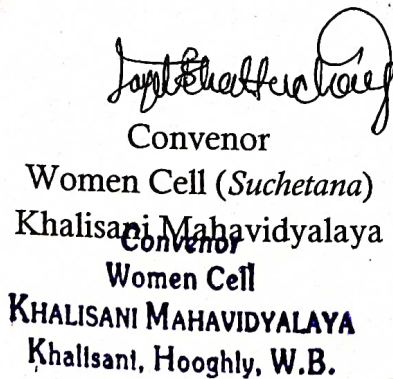 Convenor
Women Cell (Suchetana)
Khalisani Mahavidyalaya
Convenor
Women Cell
KHALISANI MAHAVIDYALAYA
Khalisani, Hooghly, W.B.